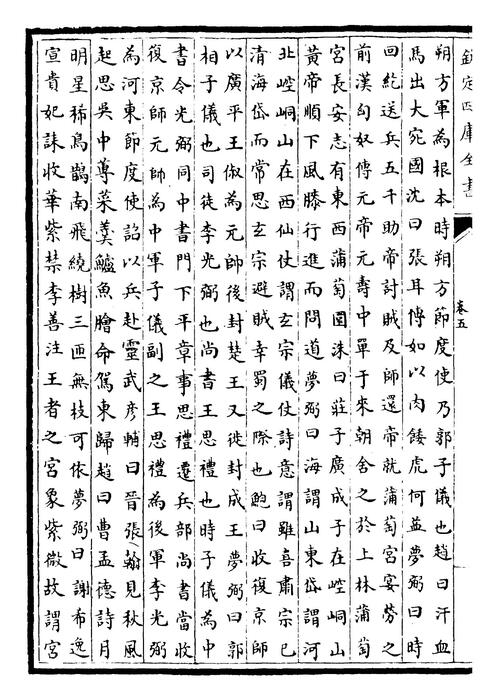 欽定四庫全書
卷五
朔方軍為根本時朔方節度使乃郭子儀也趙曰汗血
馬出大宛國沈曰張耳傳如以肉餧虎何益夢弼曰時
回紇送兵五千助帝討賊及師還帝就蒲萄宮宴勞之
前漢匈奴傳元帝元壽中單于來朝舍之於上林蒲萄
宮長安志有東西蒲萄園洙曰莊子廣成子在崆峒山
黃帝順下風膝行進而問道夢弼曰海謂山東岱謂河
北崆峒山在西仙仗謂玄宗儀仗詩意謂雖喜肅宗已
清海岱而常思玄宗避賊幸蜀之際也鮑曰收復京師
以廣平王俶為元帥後封楚王又徙封成王夢弼曰郭
相子儀也司徒李光弼也尚書王思禮也時子儀為中
書令光弼同中書門下平章事思禮遷兵部尚書當收
復京師元帥為中軍子儀副之王思禮為後軍李光弼
為河東節度使詔以兵赴靈武彥輔曰晉張翰見秋風
起思吳中蓴菜羮鱸魚膾命駕東歸趙曰曹孟德詩月
明星稀烏鵲南飛繞樹三匝無枝可依夢弼曰謝希逸
宣貴妃誄收華紫禁李善注王者之宮象紫微故謂宮